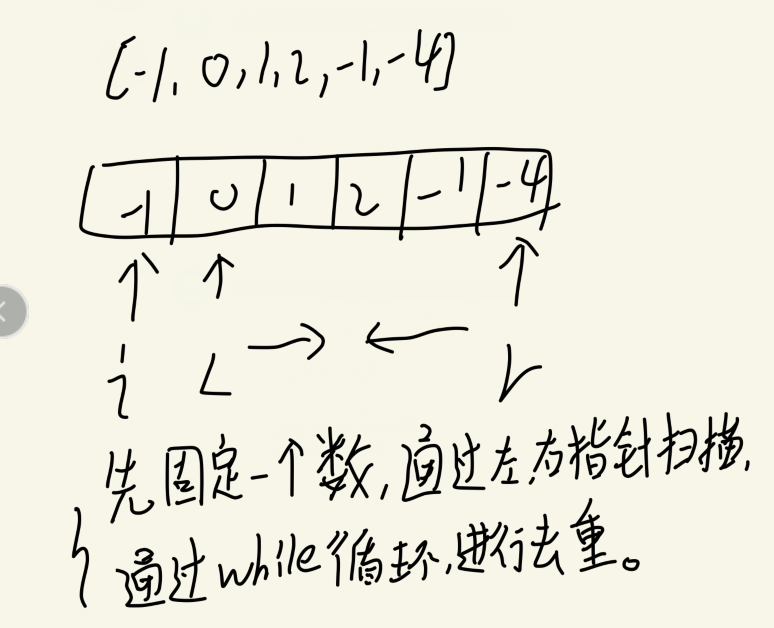 [-1, 0, 1, 2, -1, -4]
-1 0 1 2 -1 -4
i L r
先固定一个数,通过左,右指针扫描,
通过while循环,进行去重。